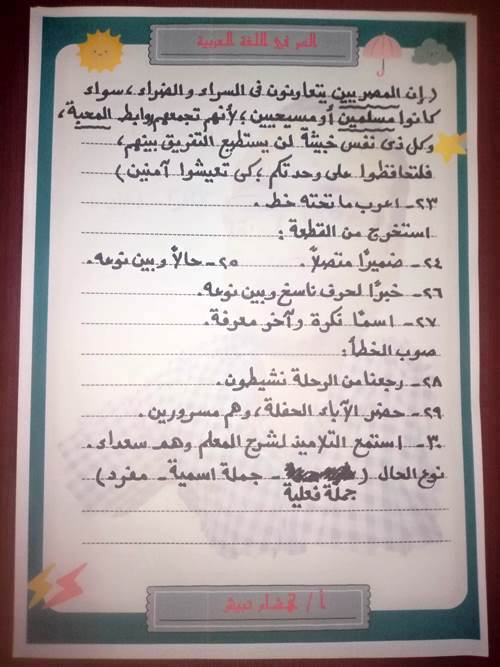 السر في اللغة العربية
(إن المصريين يتعاونون في السراء والضراء، سواء
كانوا مسلمين أو مسيحيين؛ لأنهم تجمعهم روابط المحبة،
وكل ذي نفس خبيثة لن يستطيع التفريق بينهم،
فلتحافظوا على وحدتكم؛ كي تعيشوا آمنين)
٢٣- اعرب ما تحته خط.
استخرج من القطعة:
٢٤- ضميرًا متصلاً. ٢٥- حالاً وبين نوعه.
٢٦- خبرًا لحرف ناسخ وبين نوعه.
٢٧- اسمًا نكرة وآخر معرفة.
صوب الخطأ:
٢٨- رجعنا من الرحلة نشيطون.
٢٩- حضر الآباء الحفلة، وهم مسرورين.
٣٠- استمع التلاميذ لشرح المعلم وهم سعداء.
نوع الحال ( - جملة اسمية - مفرد)
جملة فعلية
أ /